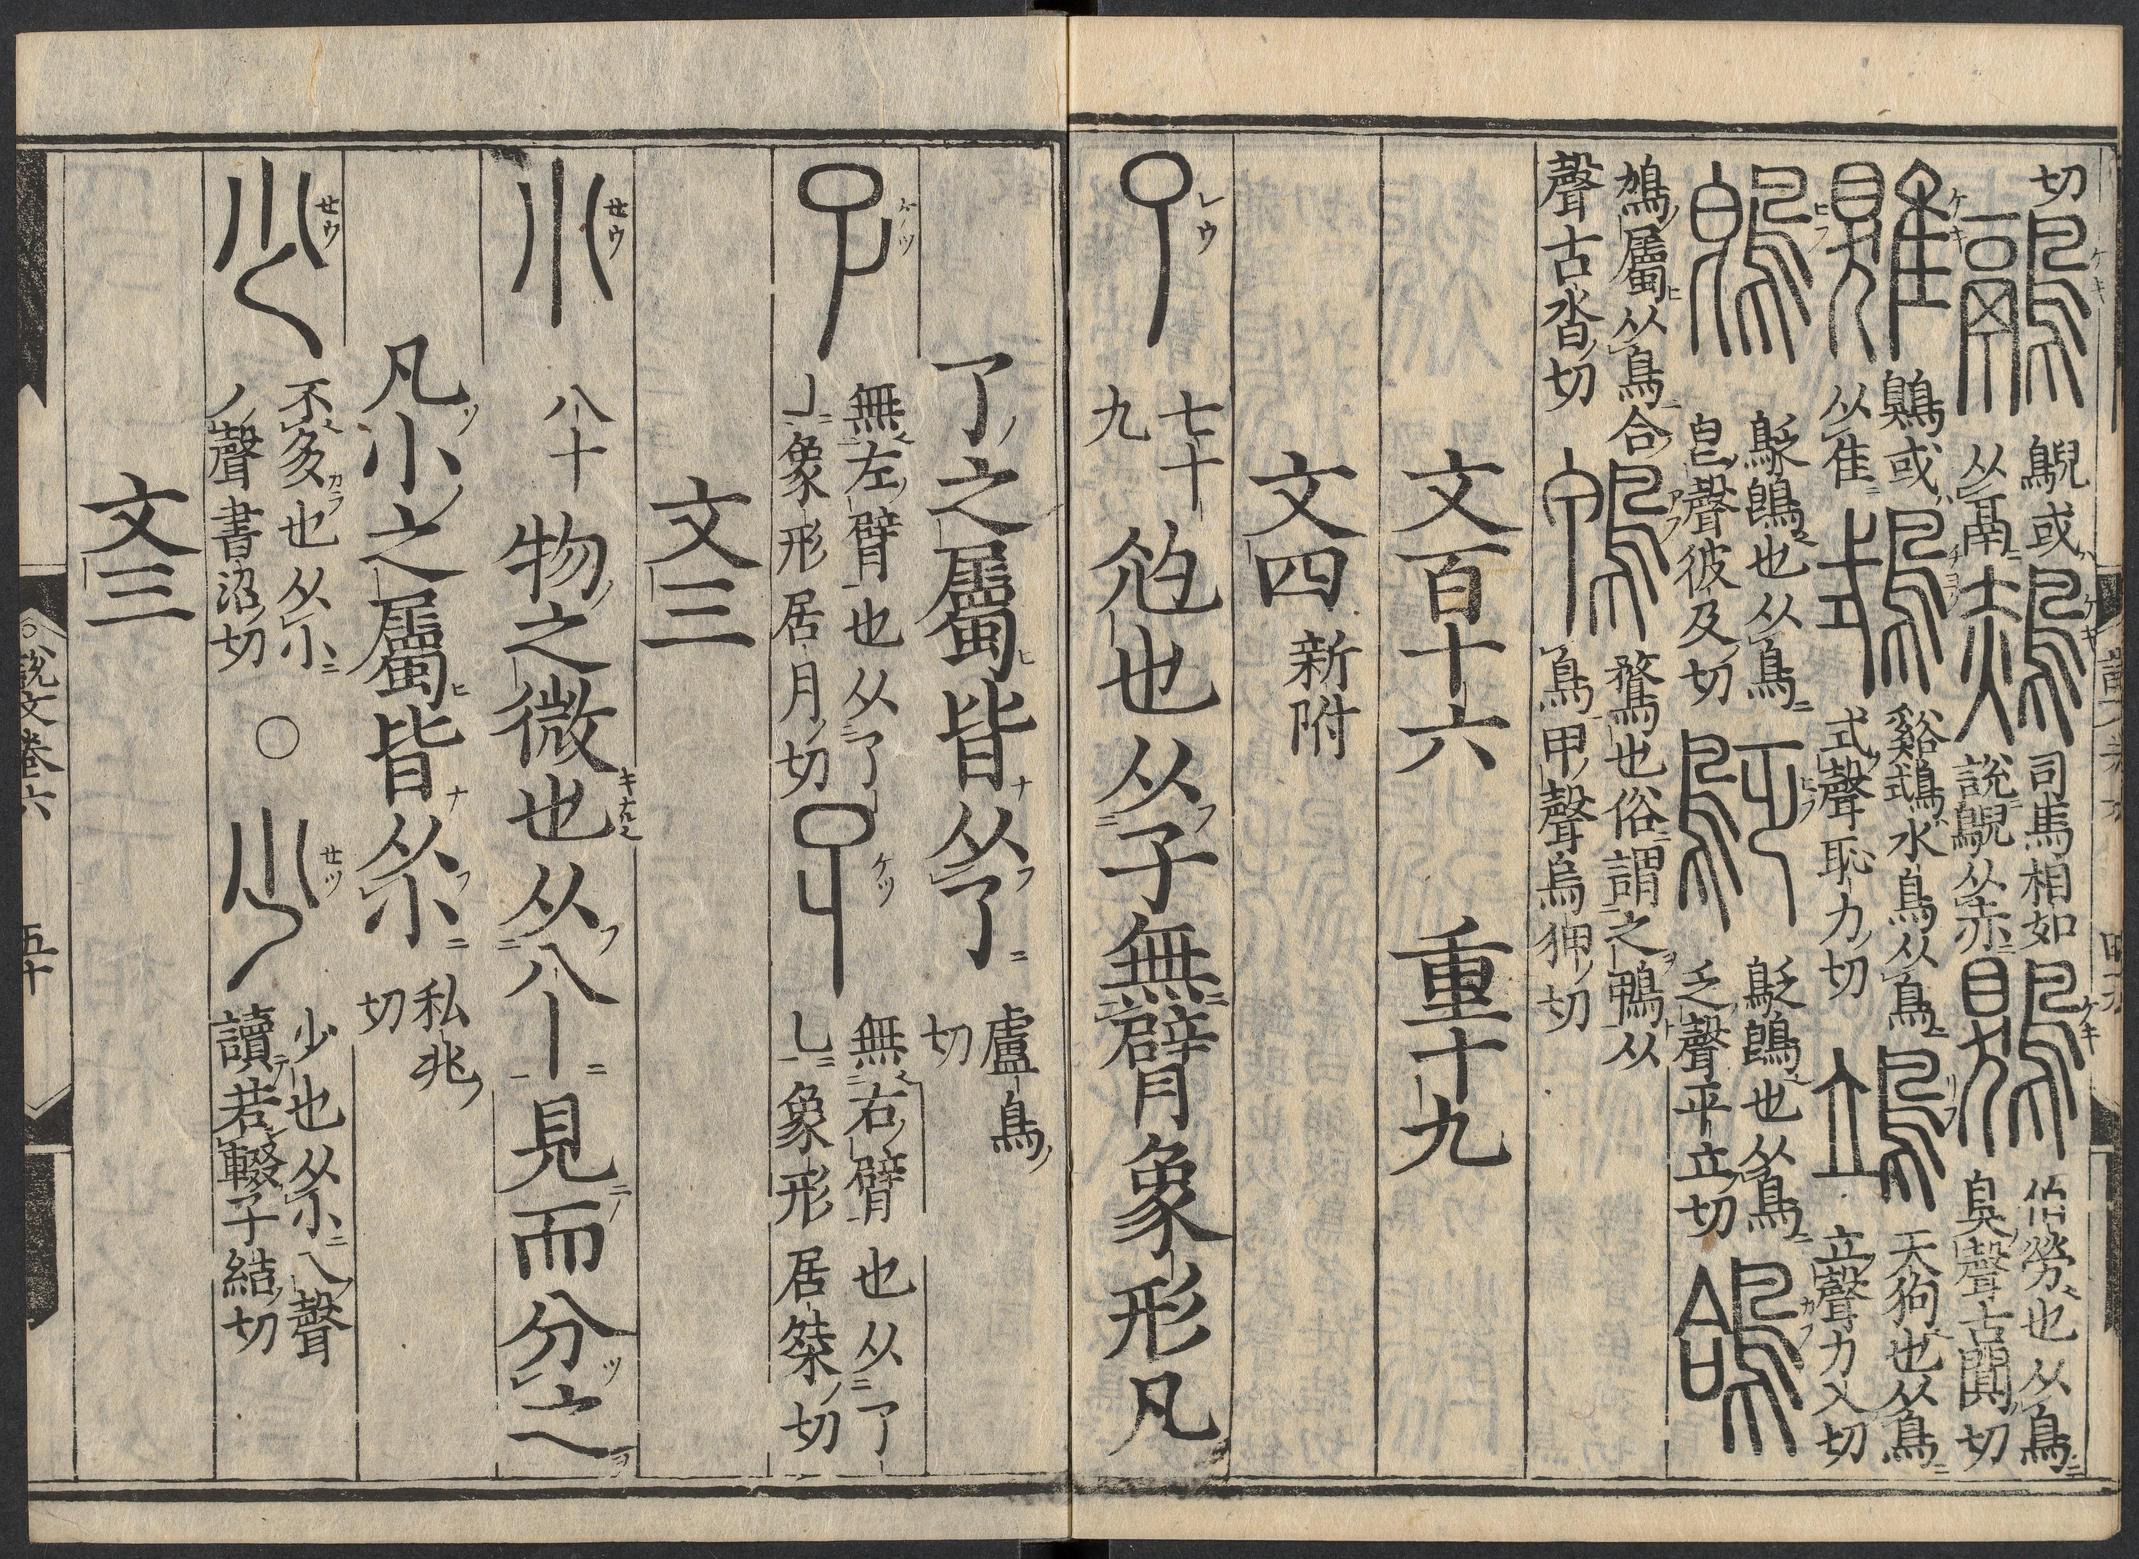 切
鶃或从鬲
司馬相如說鶃从赤
伯勞也从鳥狊聲古闃切
鶪或从隹
谿鵡水鳥从鳥式聲恥力切
天狗也从鳥立聲力入切
鴔鵖也从鳥皀聲彼及切
鴔鵖也从鳥乏聲平立切
鳩屬从鳥合聲古沓切
鶩也俗謂之鴨从鳥甲聲烏狎切
文百十六 重十九
文四 新附
七十九
尦也从子無臂象形凡
了之屬皆从了 盧鳥切
無左臂也从了乚象形居月切
無右臂也从了乚象形居桀切
文三
八十 物之微也从八亅見而分之
凡小之屬皆从小 私兆切
不多也从小丿聲書沼切 ○
少也从小乀聲讀若輟子結切
文三
說文卷六 五十